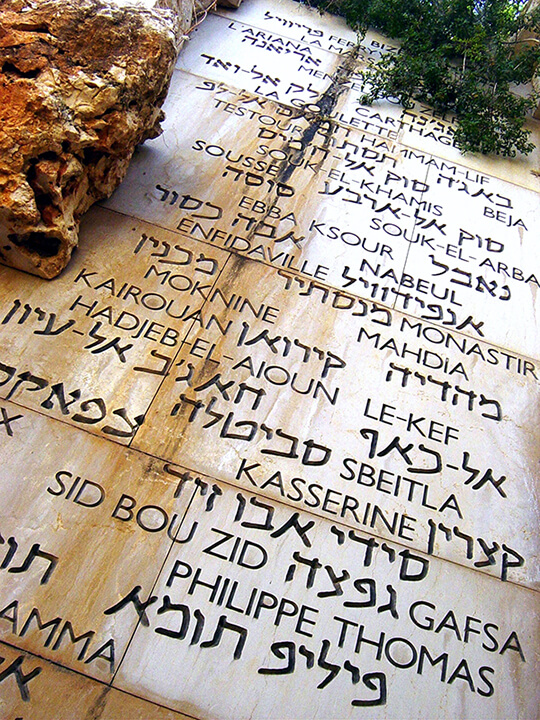 פריוויל
L'ARIANA
אריאנה
LA GOULETTE
CARTHAGE
TESTOUR
HAMMAM-LIF
תסתור
באג'ה
SOUSSE
SOUK-EL-KHAMIS
BEJA
סוסה
סוק אל-ארבע
EBBA KSOUR
SOUK-EL-ARBA
אבה כסור
סוק אל-ארבע
ENFIDAVILLE
NABEUL
נאבל
אנפידוויל
מכנין
MOKNINE
מנסתיר
MONASTIR
KAIROUAN
קירואן
MAHDIA
מהדיה
HADJEB-EL-AIOUN
חאג'ב אל-עיון
LE-KEF
אל-כאף
צפאקס
סביטלה
SBEITLA
KASSERINE
קצרין
SID BOU ZID
סידי אבו זיד
GAFSA
גפצה
PHILIPPE THOMAS
פיליפ תומא